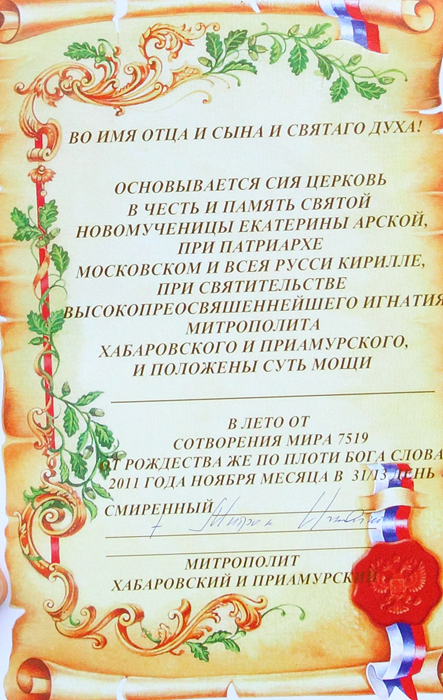 ВО ИМЯ ОТЦА И СЫНА И СВЯТАГО ДУХА!
ОСНОВЫВАЕТСЯ СИЯ ЦЕРКОВЬ
В ЧЕСТЬ И ПАМЯТЬ СВЯТОЙ
НОВОМУЧЕНИЦЫ ЕКАТЕРИНЫ АРСКОЙ,
ПРИ ПАТРИАРХЕ
МОСКОВСКОМ И ВСЕЯ РУССИ КИРИЛЛЕ,
ПРИ СВЯТИТЕЛЬСТВЕ
ВЫСОКОПРЕОСВЯШЕННЕЙШЕГО ИГНАТИЯ
МИТРОПОЛИТА
ХАБАРОВСКОГО И ПРИАМУРСКОГО,
И ПОЛОЖЕНЫ СУТЬ МОЩИ
В ЛЕТО ОТ
СОТВОРЕНИЯ МИРА 7519
ОТ РОЖДЕСТВА ЖЕ ПО ПЛОТИ БОГА СЛОВА
2011 ГОДА НОЯБРЯ МЕСЯЦА В 31/13 ДЕНЬ
СМИРЕННЫЙ
МИТРОПОЛИТ
ХАБАРОВСКИЙ И ПРИАМУРСКИЙ